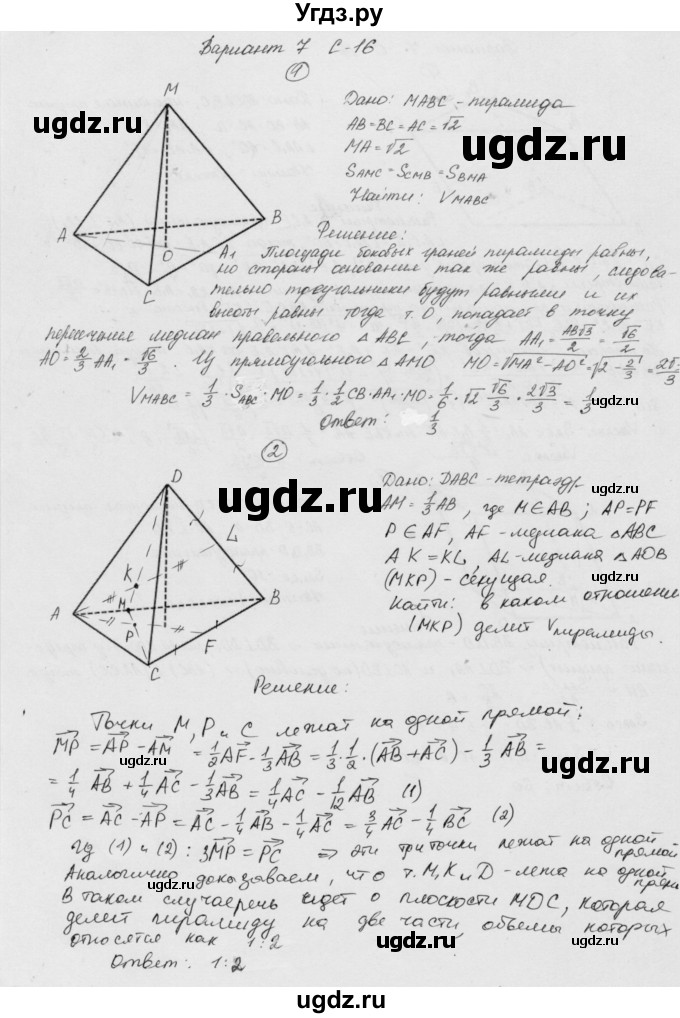 Угзу.ру
Вариант 7 С-16
1
M
Дано: MABC - пирамида
AB=BC=AC=√2
MA=√2
S_AMC = S_CMB = S_BMA
Найти: V_MABC
A
B
O
C
A₁
Решение:
Площади боковых граней пирамиды равны,
но стороны основания так же равны, следова-
тельно треугольники будут равными и их
высоты равны тогда т. O, попадает в точку
пересечения медиан правильного △ABC, тогда AA₁ = AB√3/2 = √6/2
AO = 2/3 AA₁ = √6/3. Из прямоугольного △AMO MO = √(MA² - AO²) = √(2 - 2/3) = 2√3/3
V_MABC = 1/3 · S_ABC · MO = 1/3 · 1/2 CB · AA₁ · MO = 1/6 · √2 · √6/3 · 2√3/3 = 1/3
Ответ: 1/3
2
D
Дано: DABC - тетраэдр
AM = 1/3 AB, где M∈AB; AP=PF
P∈AF, AF - медиана △ABC
AK = KL, AL - медиана △AOB
(MKP) - секущая.
Найти: в каком отношении
(MKP) делит V пирамиды.
L
K
A
M
B
P
F
C
Решение:
Точки M, P и C лежат на одной прямой:
MP = AP - AM = 1/2 AF - 1/3 AB = 1/2 · 1/2 · (AB + AC) - 1/3 AB =
= 1/4 AB + 1/4 AC - 1/3 AB = 1/4 AC - 1/12 AB (1)
PC = AC - AP = AC - 1/4 AB - 1/4 AC = 3/4 AC - 1/4 BC (2)
Из (1) и (2): 3MP = PC ⇒ эти три точки лежат на одной прямой
Аналогично доказываем, что т. M, K и D - лежа на одной
В таком случае речь идет о плоскости MDC, которая
делит пирамиду на две части, объемы которых
относятся как 1:2
Ответ: 1:2
ugdz.ru
ugdz.ru
ugdz.ru
ugdz.ru
ugdz.ru
ugdz.ru
ugdz.ru
ugdz.ru
ugdz.ru
ugdz.ru
ugdz.ru
ugdz.ru
ugdz.ru
ugdz.ru